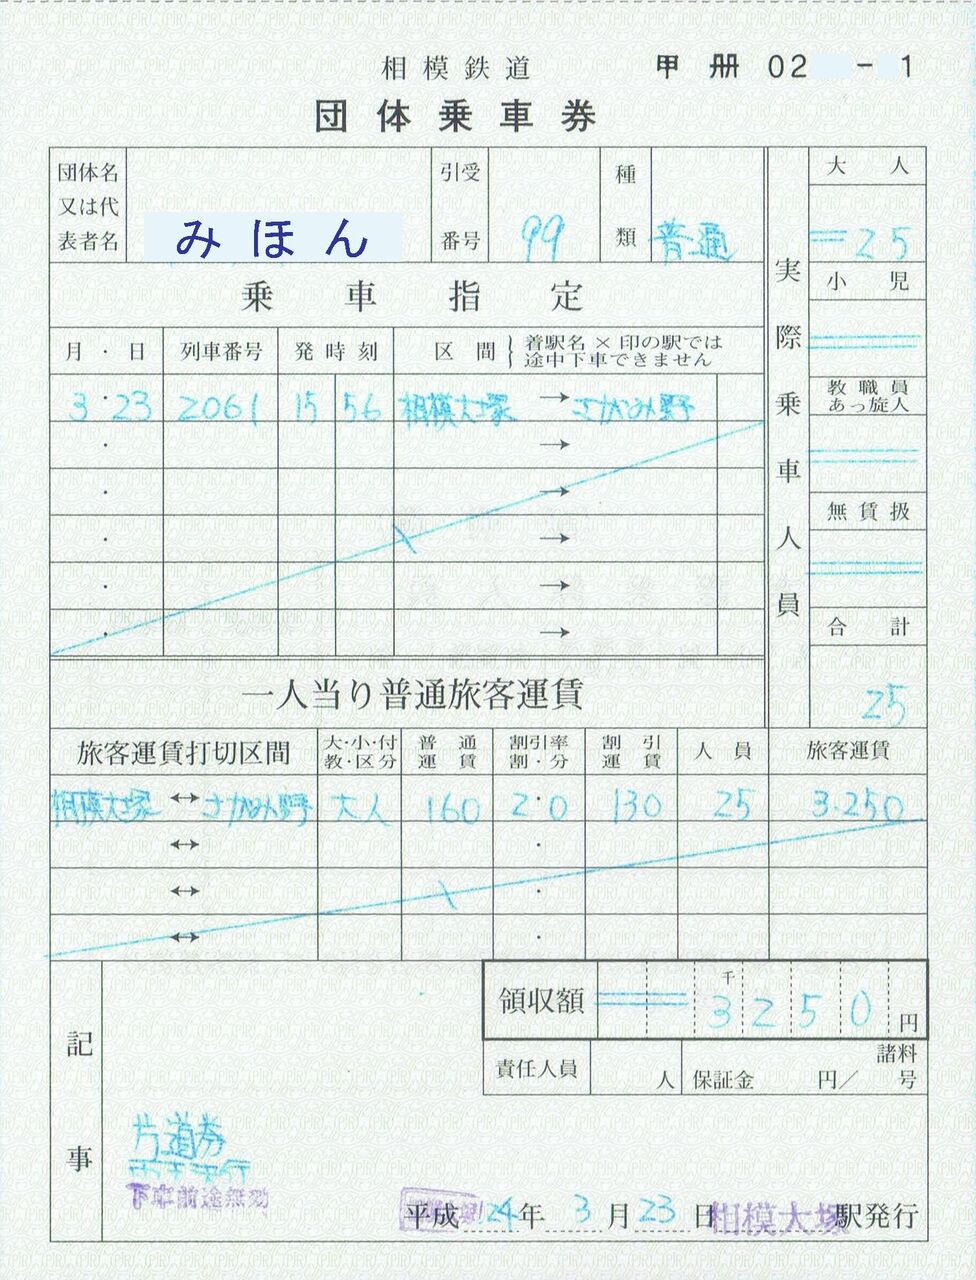 相模鉄道 甲 册 02 - 1
団体乗車券
団体名又は代表者名 みほん 引受番号 99 種類 普通
乗車指定
月・日 列車番号 発時刻 区間 着駅名×印の駅では途中下車できません
3・23 2061 15 56 相模大塚 → さがみ野
・ →
・ →
・ →
・ →
・ →
実際乗車人員
大人
25
小児
教職員あっ旋人
無賃扱
合計
25
一人当り普通旅客運賃
旅客運賃打切区間 大・小・付教・区分 普通運賃 割引率割・分 割引運賃 人員 旅客運賃
相模大塚 ↔ さがみ野 大人 160 2・0 130 25 3.250
↔ ・
↔ ・
↔ ・
領収額 千 3250 円
責任人員 人 保証金 円/ 諸料 号
記事
片道券
下車前途無効
平成 24年 3月23日 相模大塚 駅発行